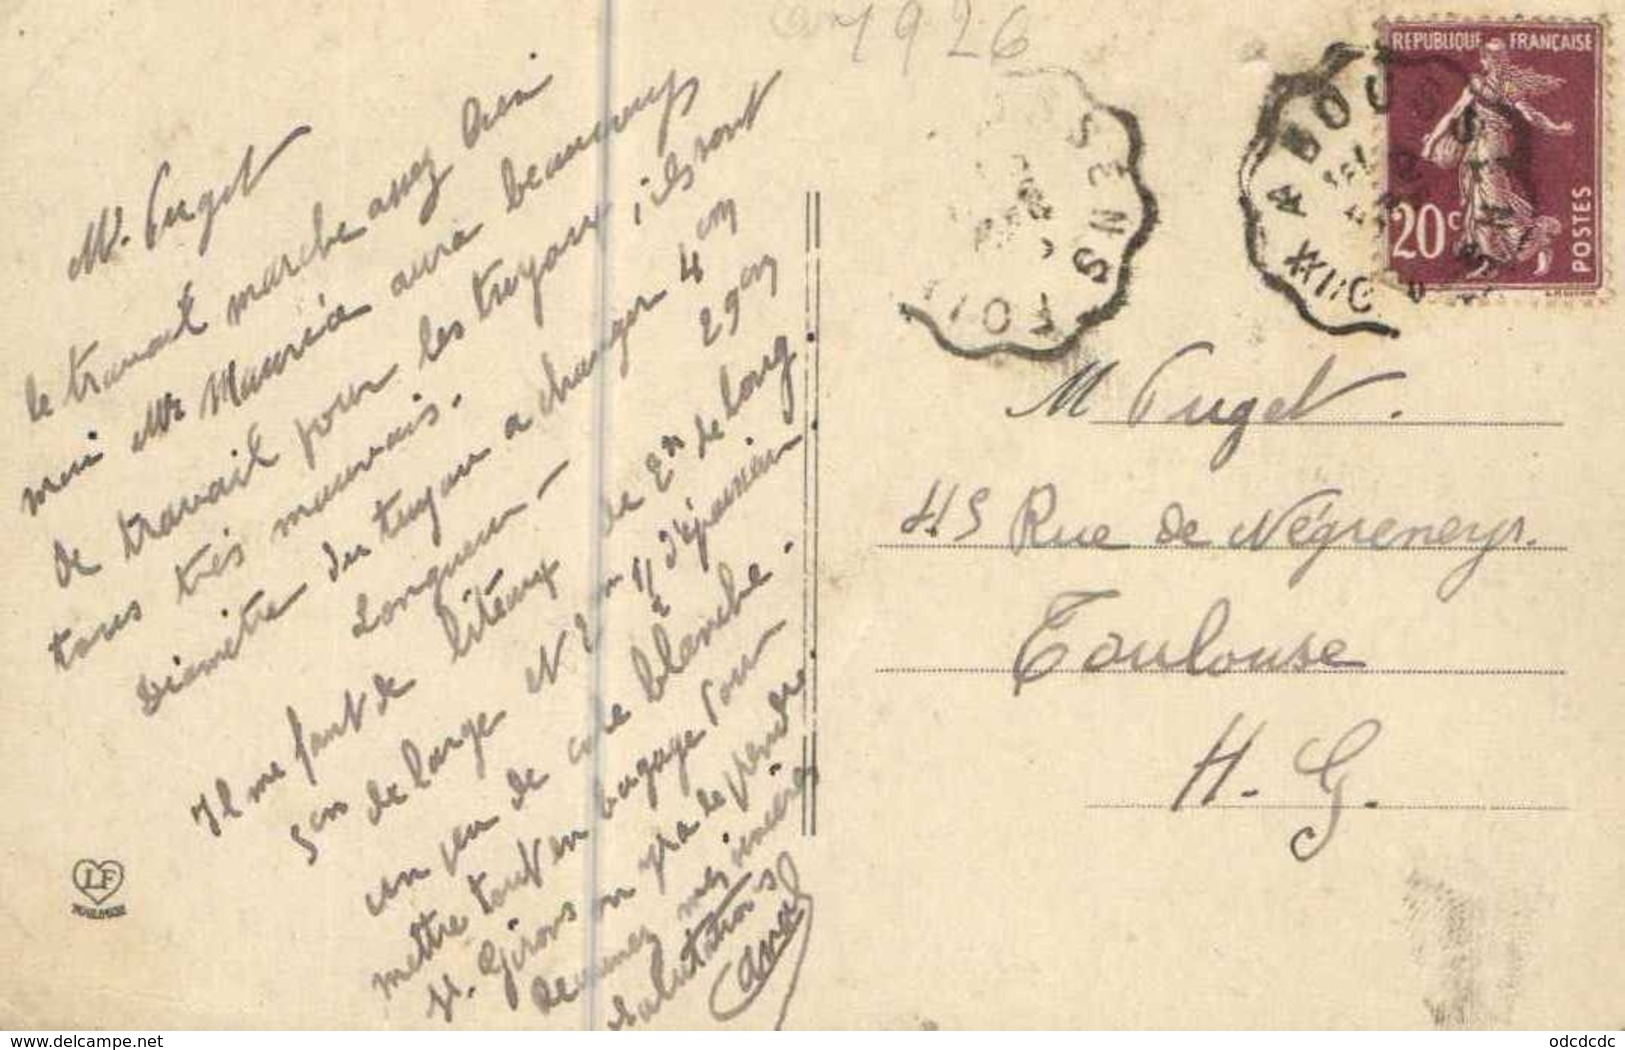 1926
REPUBLIQUE FRANÇAISE
20c
POSTES
A BOUSSENS
FOIX
SENS
Mr. Puget
le travail marche assez bien
mais Mr Maurié aura beaucoup
de travail pour les tuyaux, ils sont
tous très mauvais.
Diamètre du tuyau a changer 4 cm
Longueur — 29 cm
Il me faut de liteaux de 2m de long
5 cm de large et 2 1/2 d'épaisseur
un peu de cire blanche.
mettre tout en bagage pour
St. Girons on ira le prendre.
Recevez mes sincères
salutations
M Puget.
45 Rue de Négreneys.
Toulouse
H. G.
LF
TOULOUSE
delcampe.net
odcdcdc